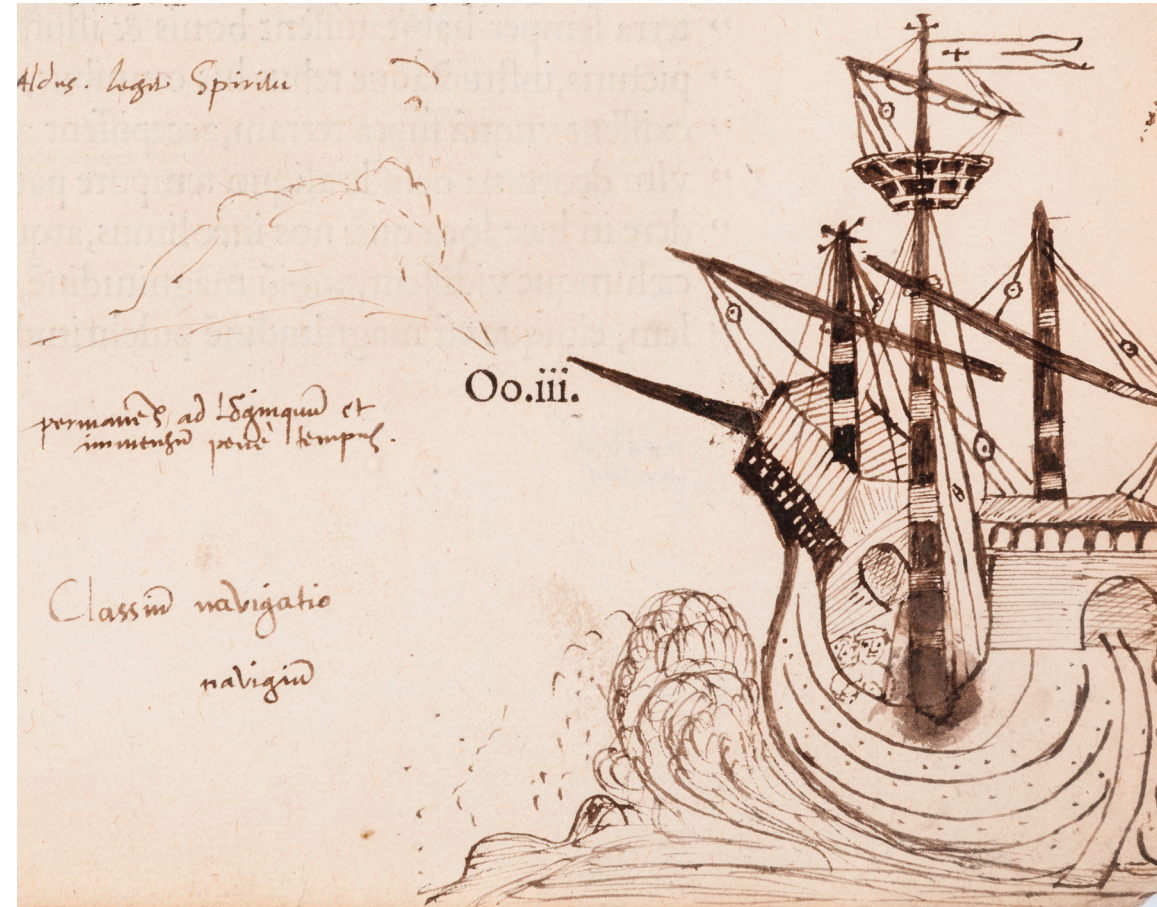 Aldus. legit Spiritu
Oo.iii.
permanēs ad lōginquū et
immensū penè tempus.
Classiū navigatio
navigiū